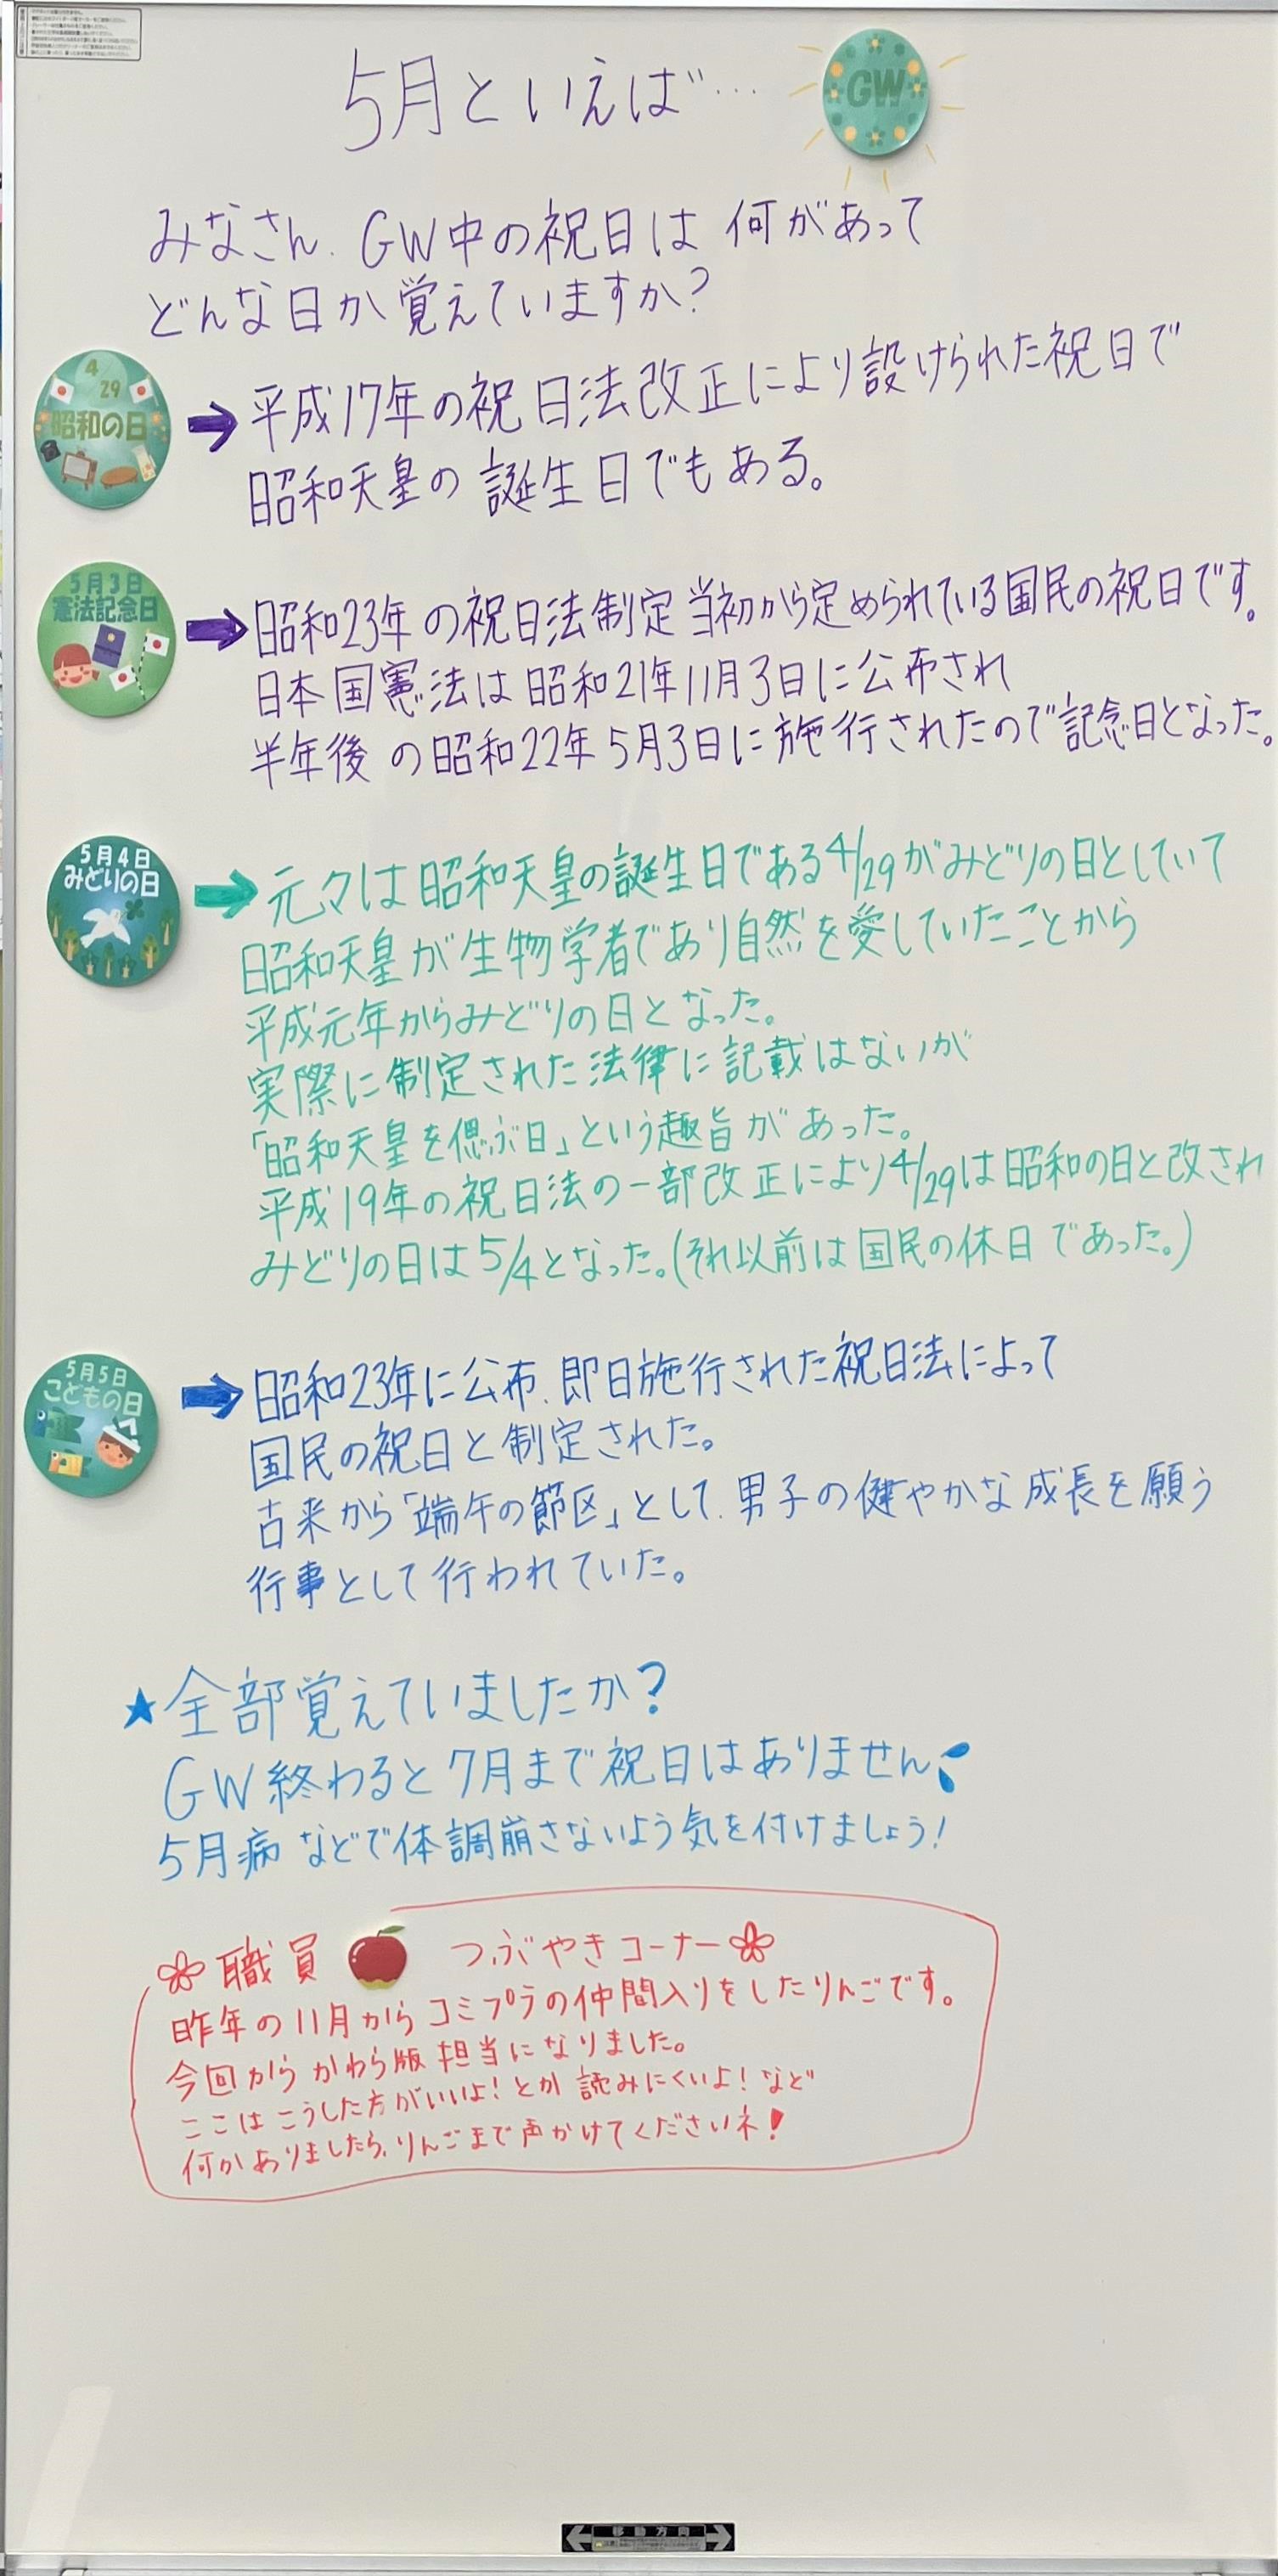 5月といえば…
GW
みなさん、GW中の祝日は何があって
どんな日か覚えていますか?
4/29
昭和の日
→平成17年の祝日法改正により設けられた祝日で
昭和天皇の誕生日でもある。
5月3日
憲法記念日
→昭和23年の祝日法制定当初から定められている国民の祝日です。
日本国憲法は昭和21年11月3日に公布され
半年後の昭和22年5月3日に施行されたので記念日となった。
5月4日
みどりの日
→元々は昭和天皇の誕生日である4/29がみどりの日としていて
昭和天皇が生物学者であり自然を愛していたことから
平成元年からみどりの日となった。
実際に制定された法律に記載はないが
「昭和天皇を偲ぶ日」という趣旨があった。
平成19年の祝日法の一部改正により4/29は昭和の日と改され
みどりの日は5/4となった。(それ以前は国民の休日であった。)
5月5日
こどもの日
→昭和23年に公布、即日施行された祝日法によって
国民の祝日と制定された。
古来から「端午の節区」として、男子の健やかな成長を願う
行事として行われていた。
★全部覚えていましたか?
GW終わると7月まで祝日はありません
5月病などで体調崩さないよう気を付けましょう!
職員 つぶやきコーナー
昨年の11月からコミプラの仲間入りをしたりんごです。
今回からかわら版担当になりました。
ここはこうした方がいいよ!とか読みにくいよ!など
何かありましたら、りんごまで声かけてくださいネ!
移動方向